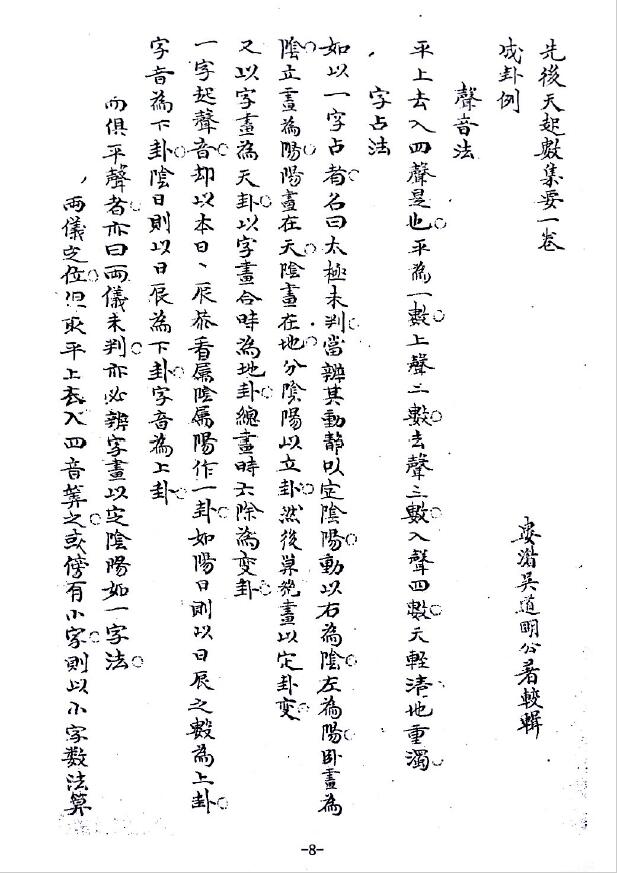 先後天起數集要一卷
成卦例
婺㵛吳道明公著較輯
聲音法
平上去入四聲是也。平為一數。上聲二數。去聲三數。入聲四數。天輕清。地重濁。
字占法
如以一字占者。名曰太極未判。當辨其動靜以定陰陽。動以右為陰。左為陽。卧畫為
陰。立畫為陽。陽畫在天。陰畫在地。分陰陽以立卦。然後算幾畫以定卦變。
又以字畫為天卦。以字畫合時為地卦。總畫時六除為变卦。
一字起聲音。却以本日、辰叅看屬陰屬陽作一卦。如陽日則以日辰之數為上卦。
字音為下卦。陰日則以日辰為下卦。字音為上卦。
而俱平聲者。亦曰兩儀未判。亦必辨字畫以定陰陽如一字法。
兩儀定位。但取平上去入四音筭之。或傍有小字。則以小字数法算
-8-